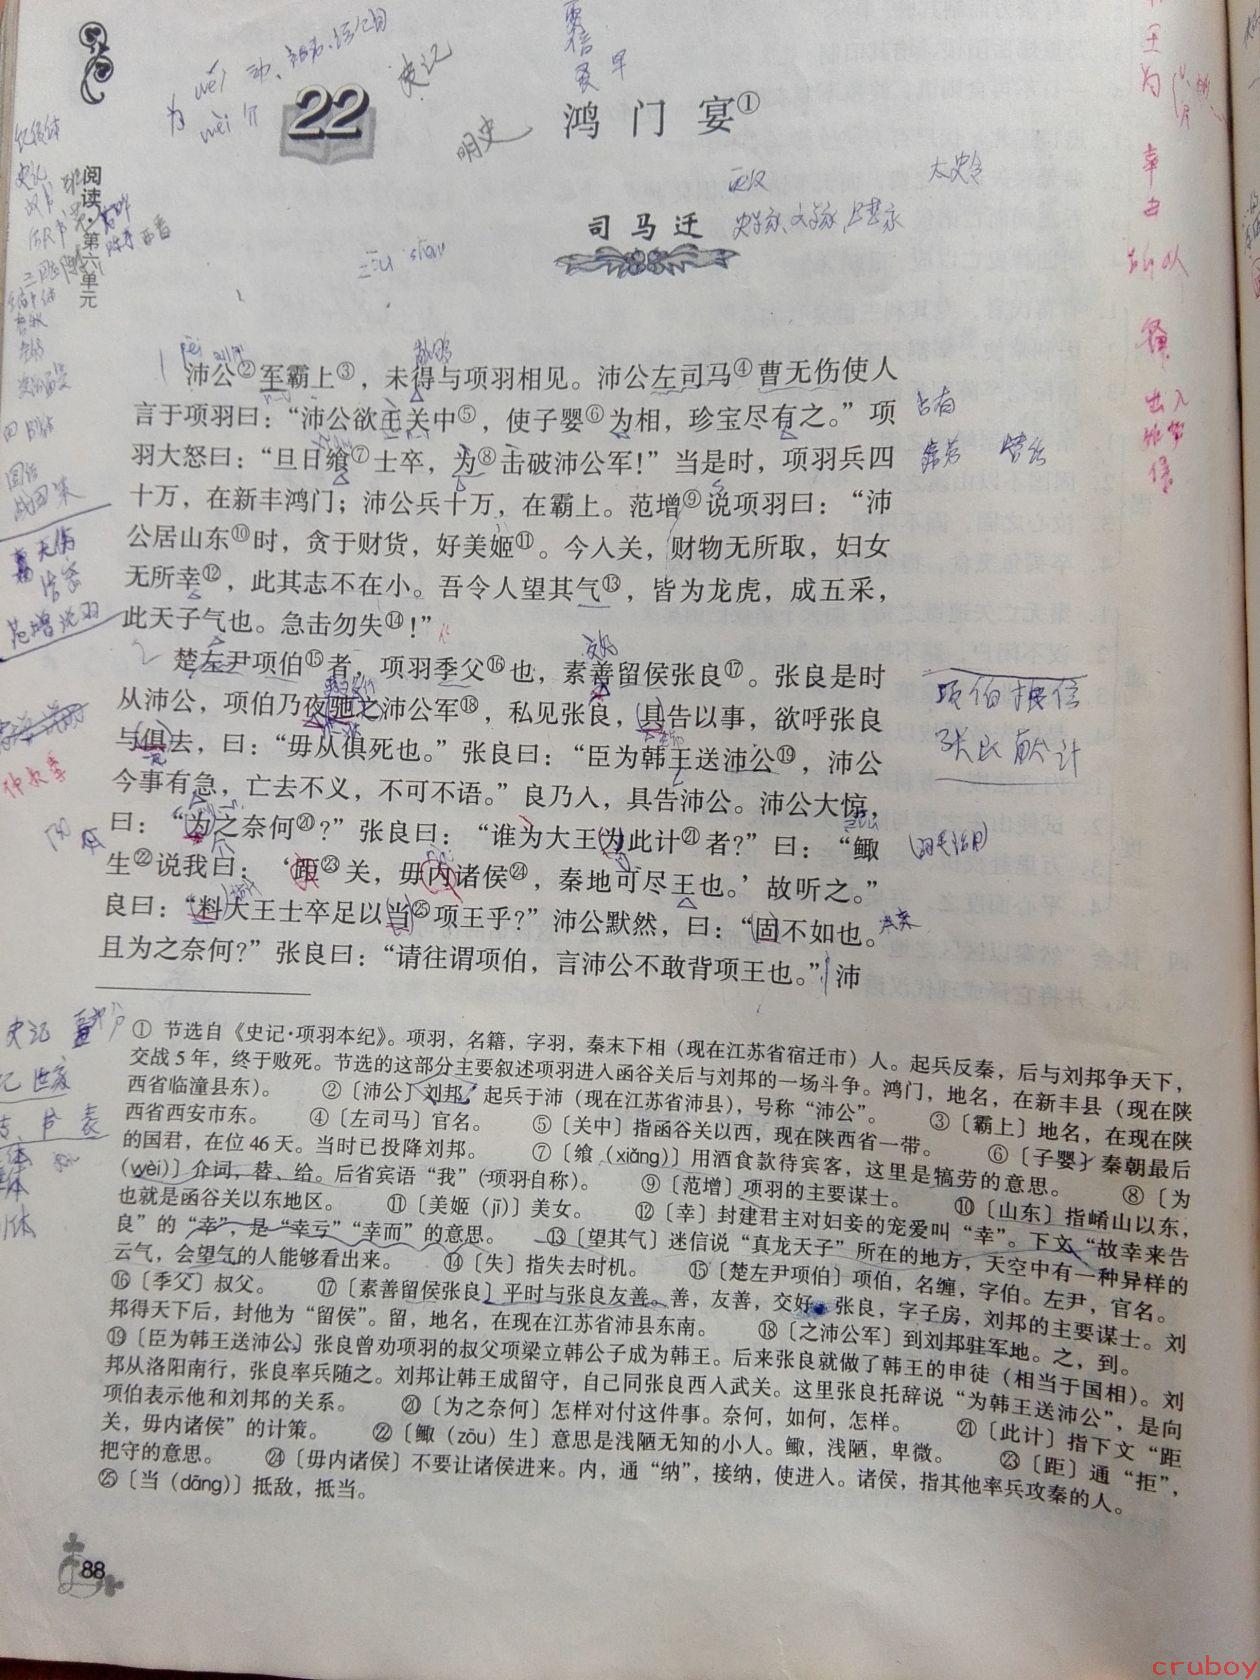 22
鸿门宴①
司马迁
阅读·第六单元
史记
明史
太史令
wèi 动
为
wèi 介
沛公②军霸上③，未得与项羽相见。沛公左司马④曹无伤使人
言于项羽曰：“沛公欲王关中⑤，使子婴⑥为相，珍宝尽有之。”项
羽大怒曰：“旦日飨⑦士卒，为⑧击破沛公军！”当是时，项羽兵四
十万，在新丰鸿门；沛公兵十万，在霸上。范增⑨说项羽曰：“沛
公居山东⑩时，贪于财货，好美姬⑪。今入关，财物无所取，妇女
无所幸⑫，此其志不在小。吾令人望其气⑬，皆为龙虎，成五采，
此天子气也。急击勿失⑭！”
占有
楚左尹项伯⑮者，项羽季父⑯也，素善留侯张良⑰。张良是时
从沛公，项伯乃夜驰之沛公军⑱，私见张良，具告以事，欲呼张良
与俱去，曰：“毋从俱死也。”张良曰：“臣为韩王送沛公⑲，沛公
今事有急，亡去不义，不可不语。”良乃入，具告沛公。沛公大惊，
曰：“为之奈何⑳？”张良曰：“谁为大王为此计㉑者？”曰：“鲰
生㉒说我曰：‘距㉓关，毋内诸侯㉔，秦地可尽王也。’故听之。”
良曰：“料大王士卒足以当㉕项王乎？”沛公默然，曰：“固不如也。
且为之奈何？”张良曰：“请往谓项伯，言沛公不敢背项王也。”沛
项伯报信
张良献计
① 节选自《史记·项羽本纪》。项羽，名籍，字羽，秦末下相（现在江苏省宿迁市）人。起兵反秦，后与刘邦争天下，
交战5年，终于败死。节选的这部分主要叙述项羽进入函谷关后与刘邦的一场斗争。鸿门，地名，在新丰县（现在陕
西省临潼县东）。 ②〔沛公〕刘邦，起兵于沛（现在江苏省沛县），号称“沛公”。 ③〔霸上〕地名，在现在陕
西省西安市东。 ④〔左司马〕官名。 ⑤〔关中〕指函谷关以西，现在陕西省一带。 ⑥〔子婴〕秦朝最后
的国君，在位46天。当时已投降刘邦。 ⑦〔飨（xiǎng）〕用酒食款待宾客，这里是犒劳的意思。 ⑧〔为
（wèi）〕介词，替、给。后省宾语“我”（项羽自称）。 ⑨〔范增〕项羽的主要谋士。 ⑩〔山东〕指崤山以东，
也就是函谷关以东地区。 ⑪〔美姬（jī）〕美女。 ⑫〔幸〕封建君主对妇妾的宠爱叫“幸”。下文“故幸来告
良”的“幸”，是“幸亏”“幸而”的意思。 ⑬〔望其气〕迷信说“真龙天子”所在的地方，天空中有一种异样的
云气，会望气的人能够看出来。 ⑭〔失〕指失去时机。 ⑮〔楚左尹项伯〕项伯，名缠，字伯。左尹，官名。
⑯〔季父〕叔父。 ⑰〔素善留侯张良〕平时与张良友善。善，友善，交好。张良，字子房，刘邦的主要谋士。刘
邦得天下后，封他为“留侯”。留，地名，在现在江苏省沛县东南。 ⑱〔之沛公军〕到刘邦驻军地。之，到。
⑲〔臣为韩王送沛公〕张良曾劝项羽的叔父项梁立韩公子成为韩王。后来张良就做了韩王的申徒（相当于国相）。刘
邦从洛阳南行，张良率兵随之。刘邦让韩王成留守，自己同张良西入武关。这里张良托辞说“为韩王送沛公”，是向
项伯表示他和刘邦的关系。 ⑳〔为之奈何〕怎样对付这件事。奈何，如何，怎样。 ㉑〔此计〕指下文“距
关，毋内诸侯”的计策。 ㉒〔鲰（zōu）生〕意思是浅陋无知的小人。鲰，浅陋，卑微。 ㉓〔距〕通“拒”，
把守的意思。 ㉔〔毋内诸侯〕不要让诸侯进来。内，通“纳”，接纳，使进入。诸侯，指其他率兵攻秦的人。
㉕〔当（dāng）〕抵敌，抵当。
88
cruboy